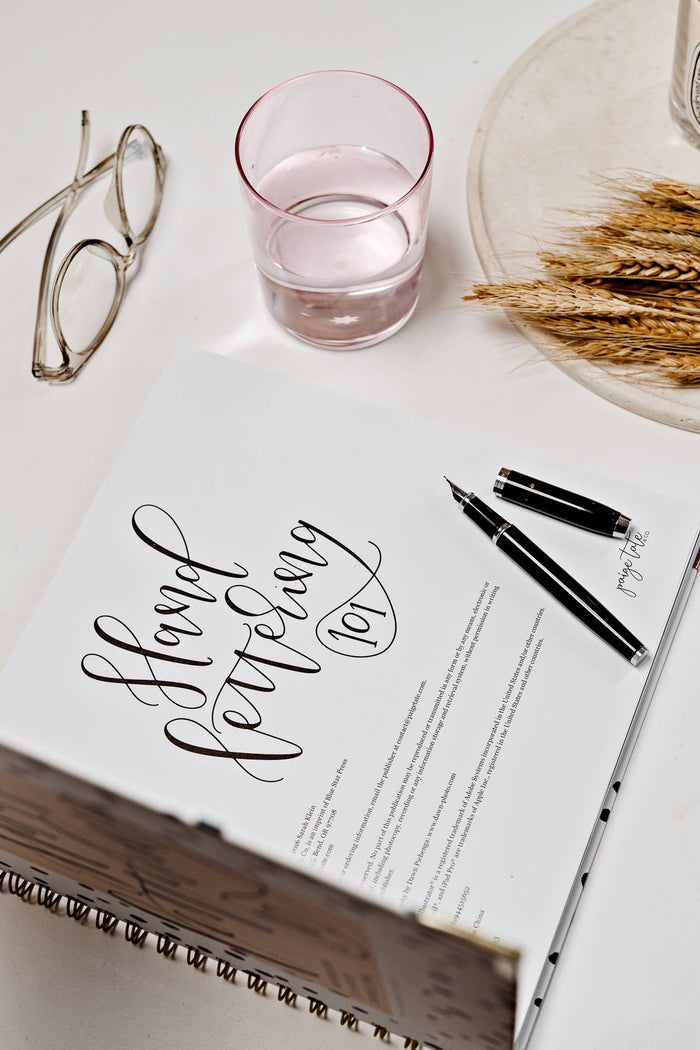 Hand
lettering
101
paigetate
& CO.
2016 Sarah Klein
Co. is an imprint of Blue Star Press
Bend, OR 97708
ordering information, email the publisher at contact@paigetate.com.
served. No part of this publication may be reproduced or transmitted in any form or by any means, electronic or
including photocopy, recording or any information storage and retrieval system, without permission in writing
publisher.
by Dawn Piebenga: www.dawn-photo.com
Illustrator® is a registered trademark of Adobe Systems incorporated in the United States and/or other countries.
and iPad Pro® are trademarks of Apple Inc., registered in the United States and other countries.
China